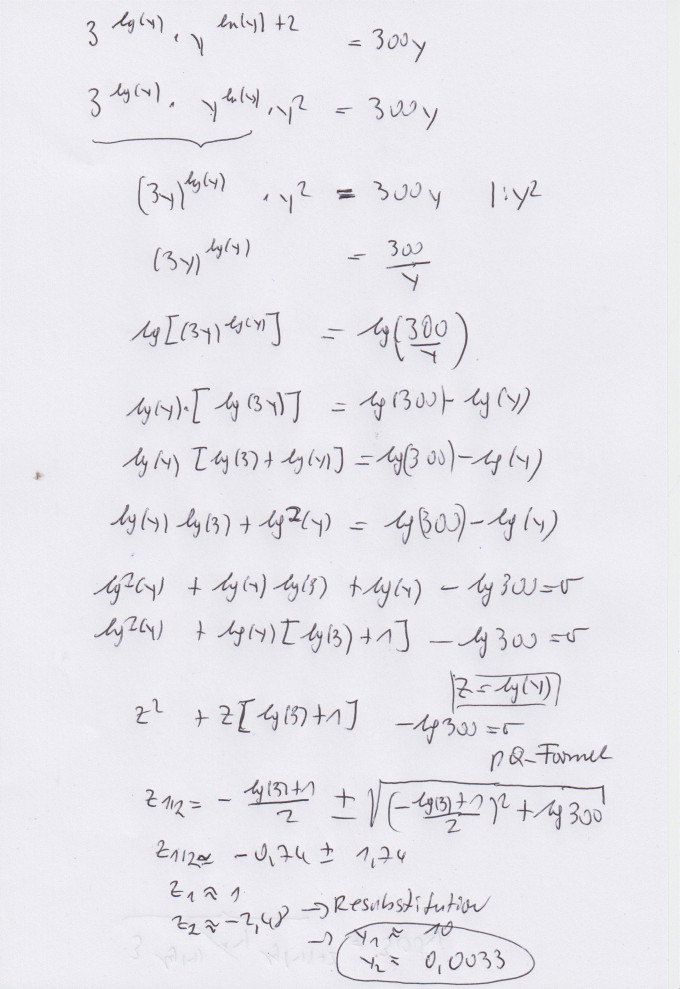 3^lg(y) · y^ln(y)+2 = 300y
3^lg(y) · y^ln(y) · y² = 300y
(3y)^lg(y) · y² = 300y |:y²
(3y)^lg(y) = 300/y
lg[(3y)^lg(y)] = lg(300/y)
lg(y)·[lg(3y)] = lg(300)-lg(y)
lg(y) [lg(3)+lg(y)] = lg(300)-lg(y)
lg(y) lg(3) + lg²(y) = lg(300)-lg(y)
lg²(y) + lg(y) lg(3) + lg(y) - lg 300 = 0
lg²(y) + lg(y) [lg(3)+1] - lg 300 = 0
|z = lg(y)|
z² + z[lg(3)+1] - lg 300 = 0
pQ-Formel
z1/2 = - (lg(3)+1)/2 ± √((-lg(3)+1)/2)² + lg 300
z1/2 ≈ -0,74 ± 1,74
z1 ≈ 1
z2 ≈ -2,48 → Resubstitution
→ y1 ≈ 10
y2 ≈ 0,0033